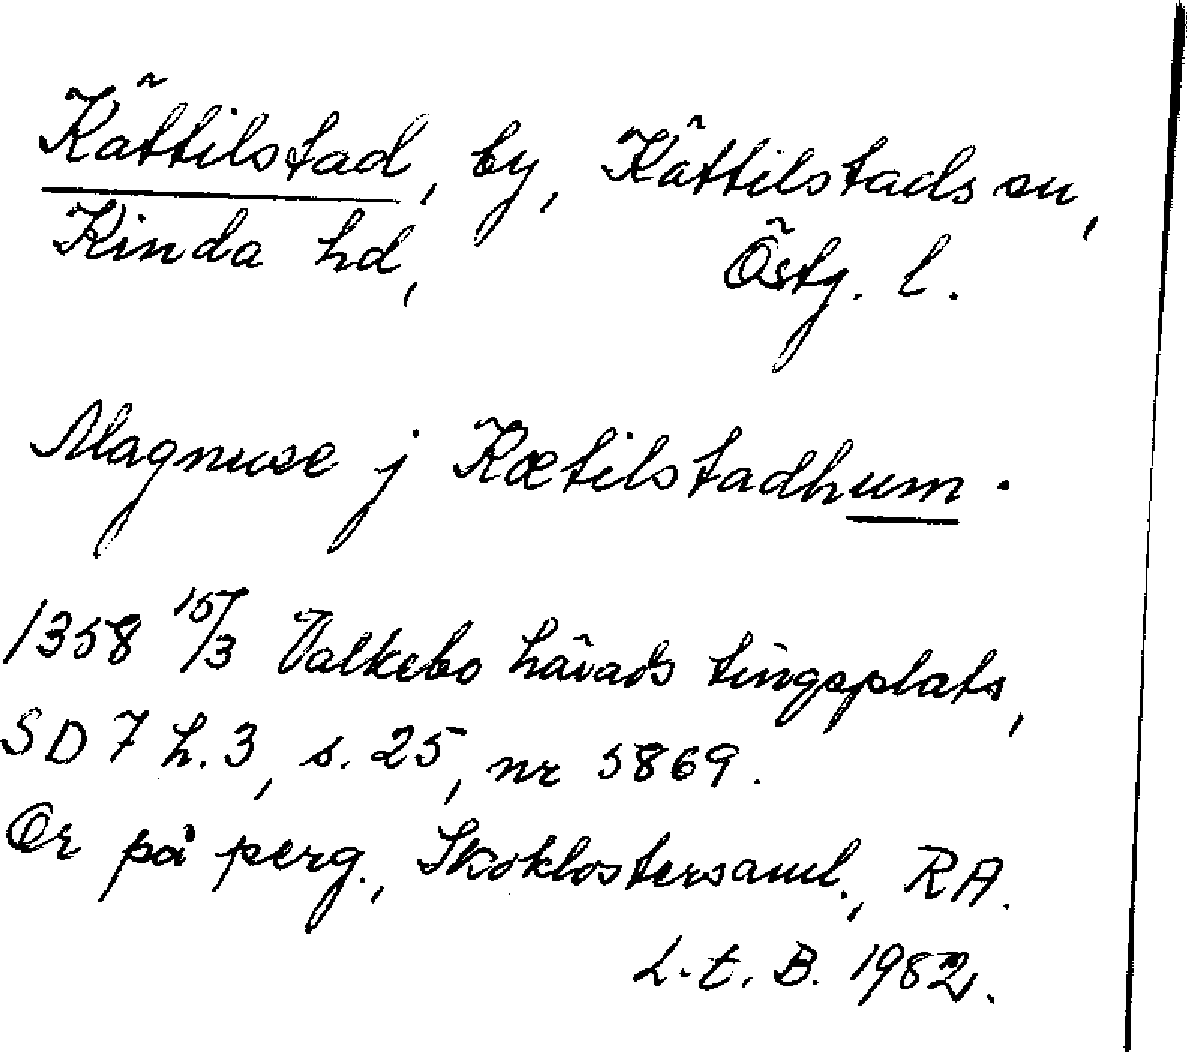 Kättilstad, by, Kättilstads sn,
Kinda hd, Östg. l.
Magnuse j Kætilstadhum.
1358 15/3 Valkebo härads tingsplats,
SD 7 h. 3, s. 25, nr 5869.
Or på perg., Skoklostersaml., RA.
L. t. B. 1982.